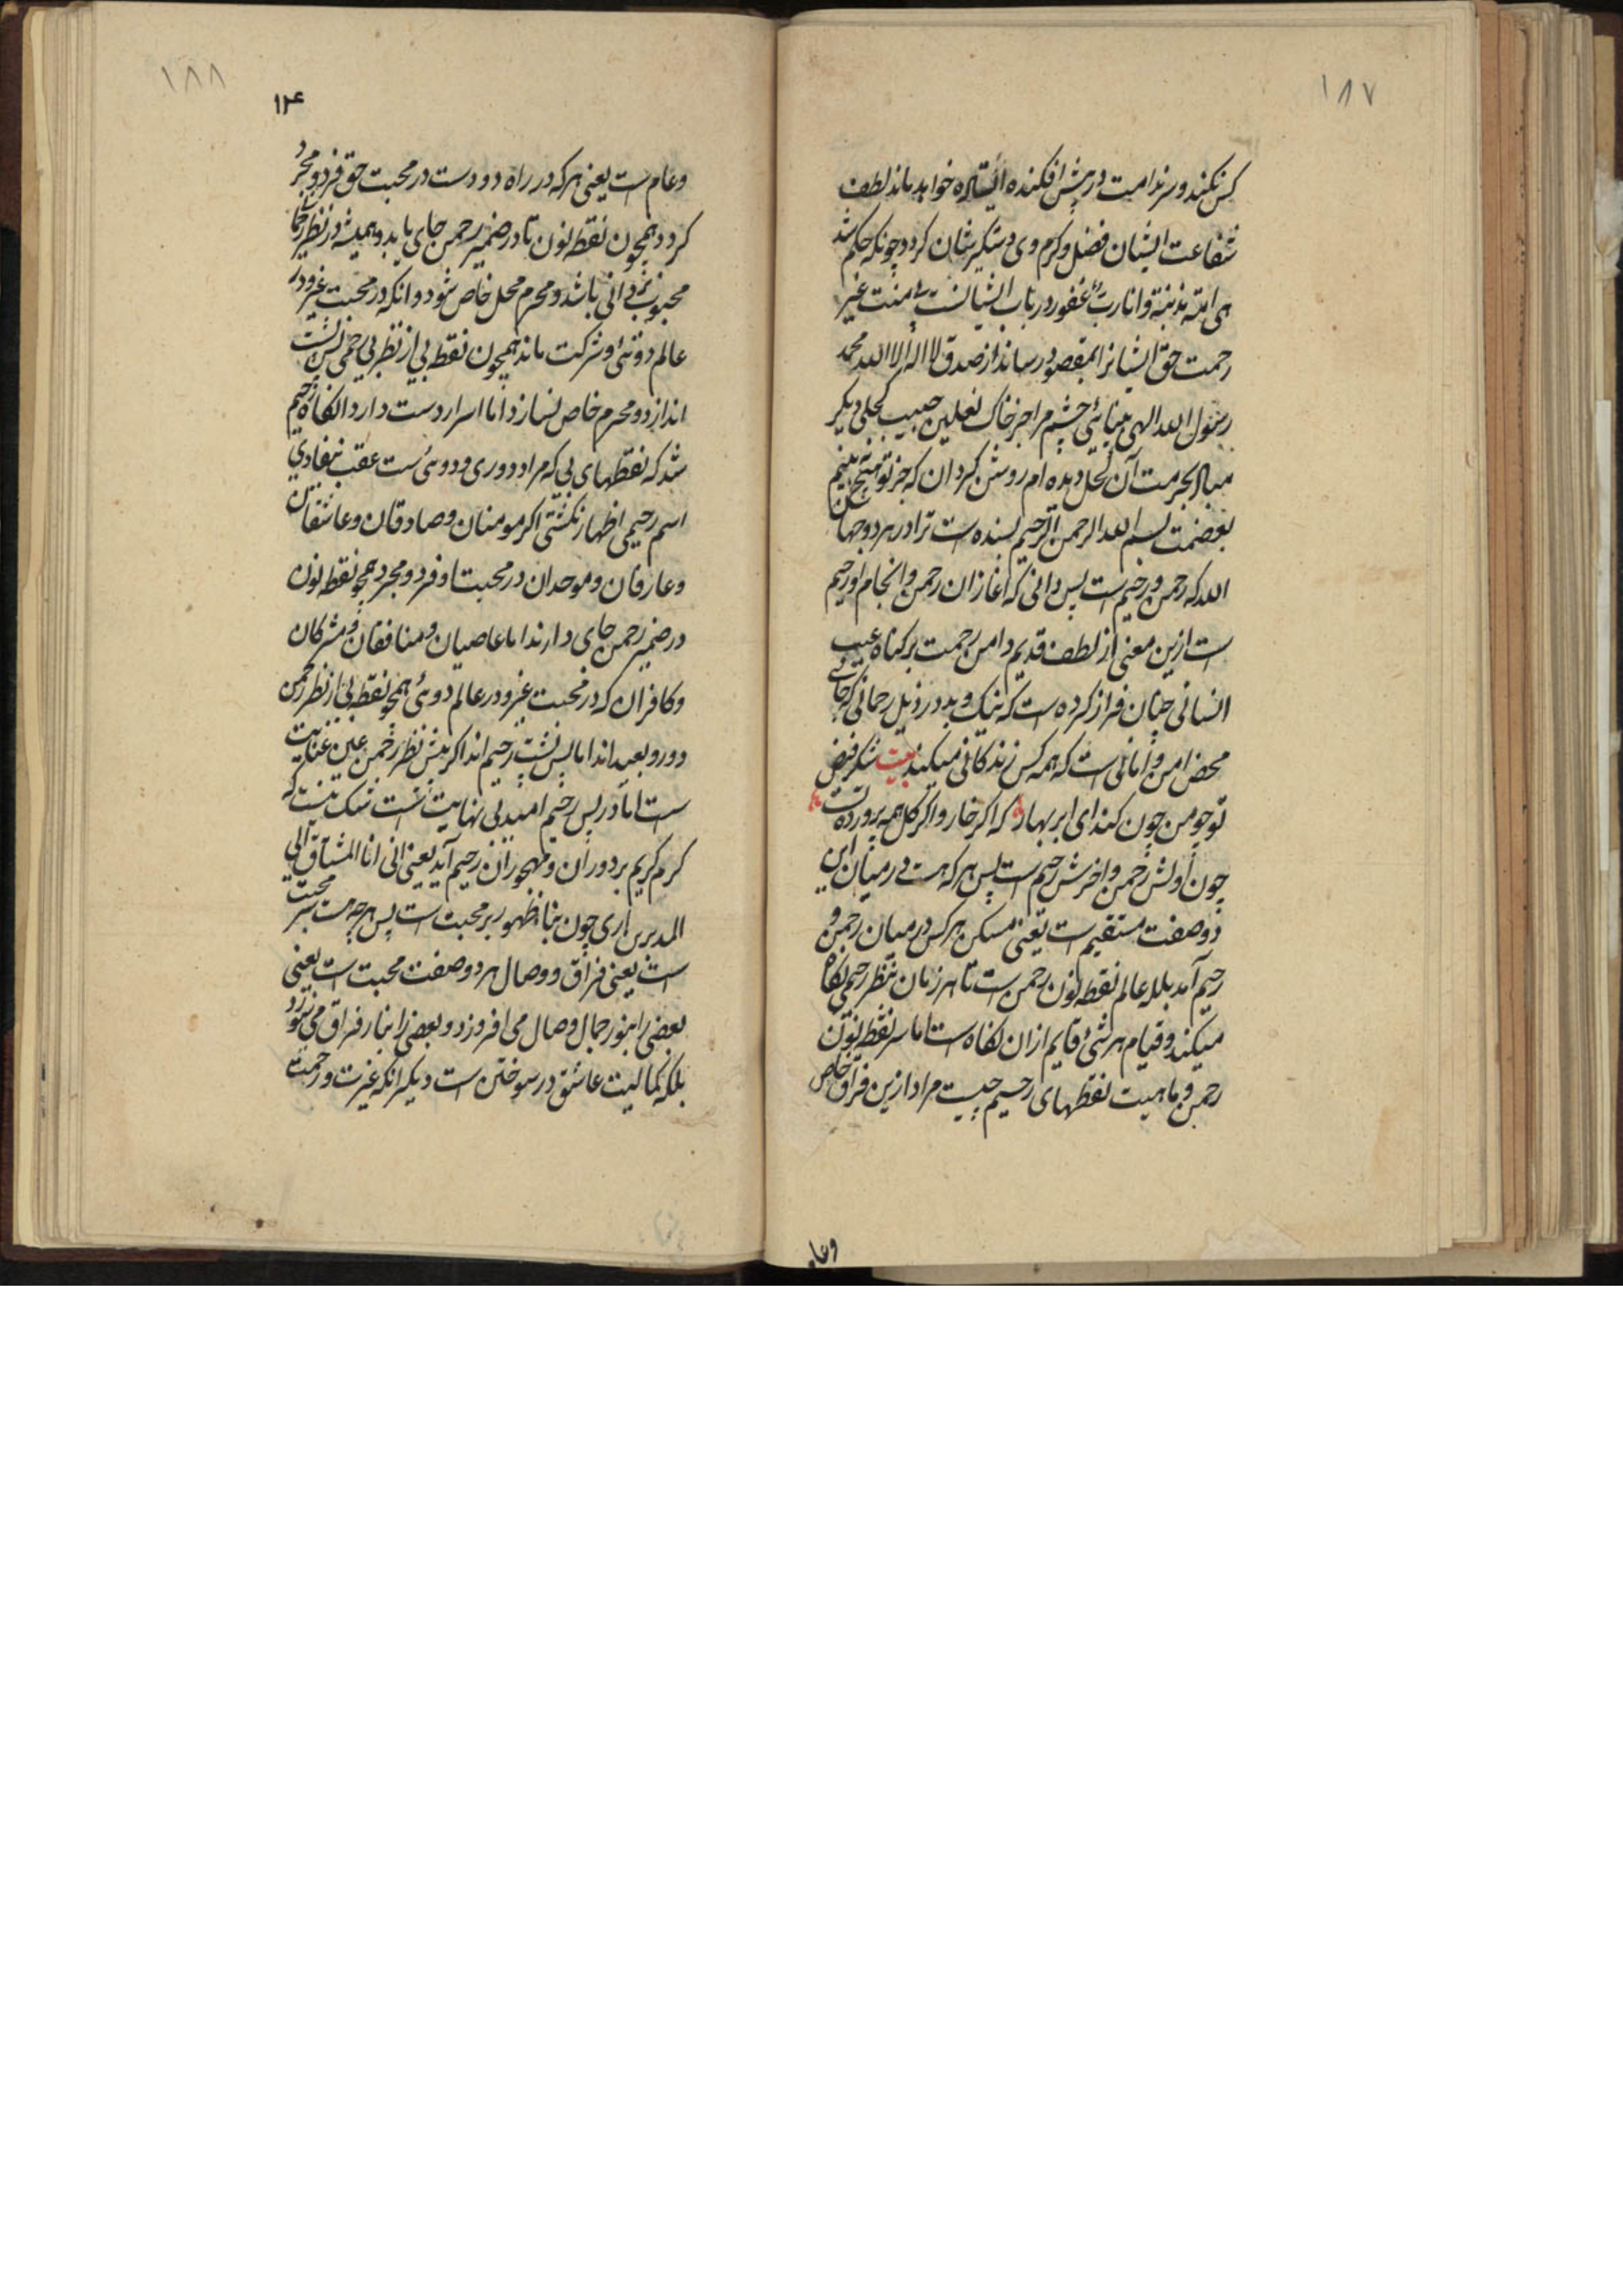 ۱۸۷
کس نکند و سر ندامت در پیش افکنده ایستاده خواهد ماند لطف
شفاعت ایشان فضل و کرم وی دستگیر شان کردد چونکه حکم شد
هی امته مذنبة وانا رب غفور در باب ایشانست بی منت غیر
رحمت حق ایشانرا بمقصود رساند از صدق لا اله الا الله محمد
رسول الله الهی بینائی چشم مرا جز خاک نعلین حبیب کحلی دیکر
مباد بحرمت آن کحل دیده ام روشن کردان که جز تو هیچ نبینم
بسم الله الرحمن الرحیم بسنده است ترا در هر دو جهان
الله که رحمن و رحیم است پس دانی که اغاز ان رحمن و انجام او رحیم
است ازین معنی از لطف قدیم دامن رحمت بر کناه عیب
انسانی چنان فراز کرده است که نیک و بد در ذیل رحمانی که جای
محض امن و امانی است که همه کس زندکانی میکنند بیت شکر فیض
تو چو من چون کند ای ابر بهار که اکر خار و اکر کل همه پرورده تست
چون اولش رحمن و اخرش رحیم است پس هر که هست در میان این
دو صفت مستقیم است یعنی مسکن هر کس در میان رحمن و
رحیم آمد بلکه عالم نقطه نون رحمن است تا هر زمان بنظر رحیمی نکاه
میکند و قیام هر شئ قایم ازان نکاه است اما سر نقطه نون
رحمن و ماهیت نقطهای رحیم چیست مراد ازین فراق خاص
وعا
۱۸۸
۱۲۴
وعام است یعنی هر که در راه دوست در محبت حق فرد و مجرد
کردد همچون نقطه نون تا در ضمیر رحمن جای یابد و همیشه در نظر
محبوب باشد و محرم محل خاص شود و انکه در محبت غیر و در
عالم دوئی و شرکت ماند همچون نقطه بی از نظر بی رحمی پس پشت
اندازد و محرم خاص نسازد اما اسرار دست دارد انکاه رحیم
شد که نقطهای بی که مراد دوری و دوئی ست عقب
اسم رحیمی اظهار نکشتی اکر مومنان و صادقان و عاشقان
وعارفان و موحدان در محبت او فرد و مجرد همچو نقطه نون
در ضمیر رحمن جای دارند اما عاصیان و منافقان و مشرکان
و کافران که در محبت غیر و در عالم دوئی همچو نقطه بی از نظر رحمن
دور و بعید اند اما پس پشت رحیم اند اکر پیش نظر رحمن عین عنایت
است اما در پس رحیم امید بی نهایت است شک نیست که
کرم کریم بر دوران و مهجوران رحیم آید یعنی انی انا المشتاق الی
المدبرین اری چون بنا ظهور بر محبت است پس هر چه هست سر محبت
است یعنی فراق و وصال هر دو صفت محبت است یعنی
بعضی را بنور جمال وصال می افروزد و بعضی را بنار فراق می سوزد
بلکه کمالیت عاشق در سوختن است دیکر انکه غیرت و رحمت